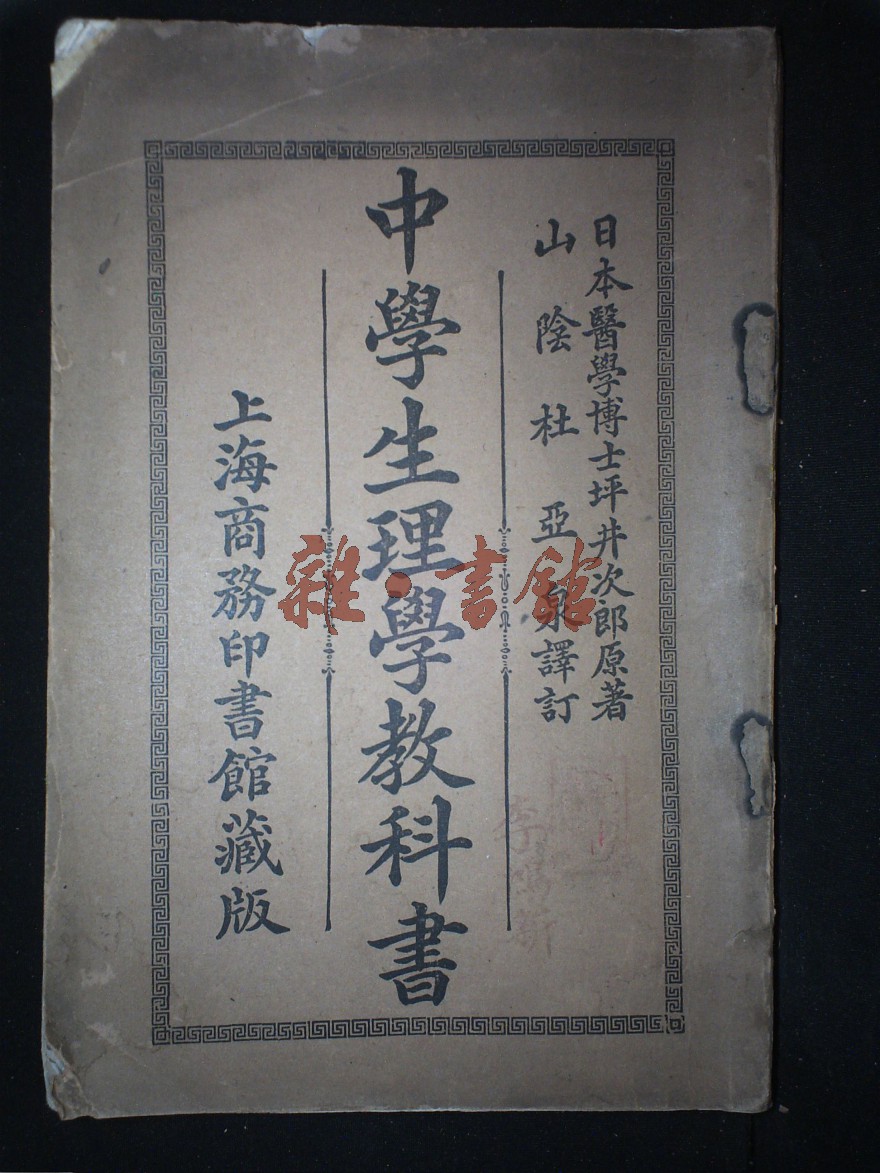 日本醫學博士坪井次郎原著
山陰杜亞泉譯訂
中學生理學教科書
上海商務印書館藏版
雜·書館